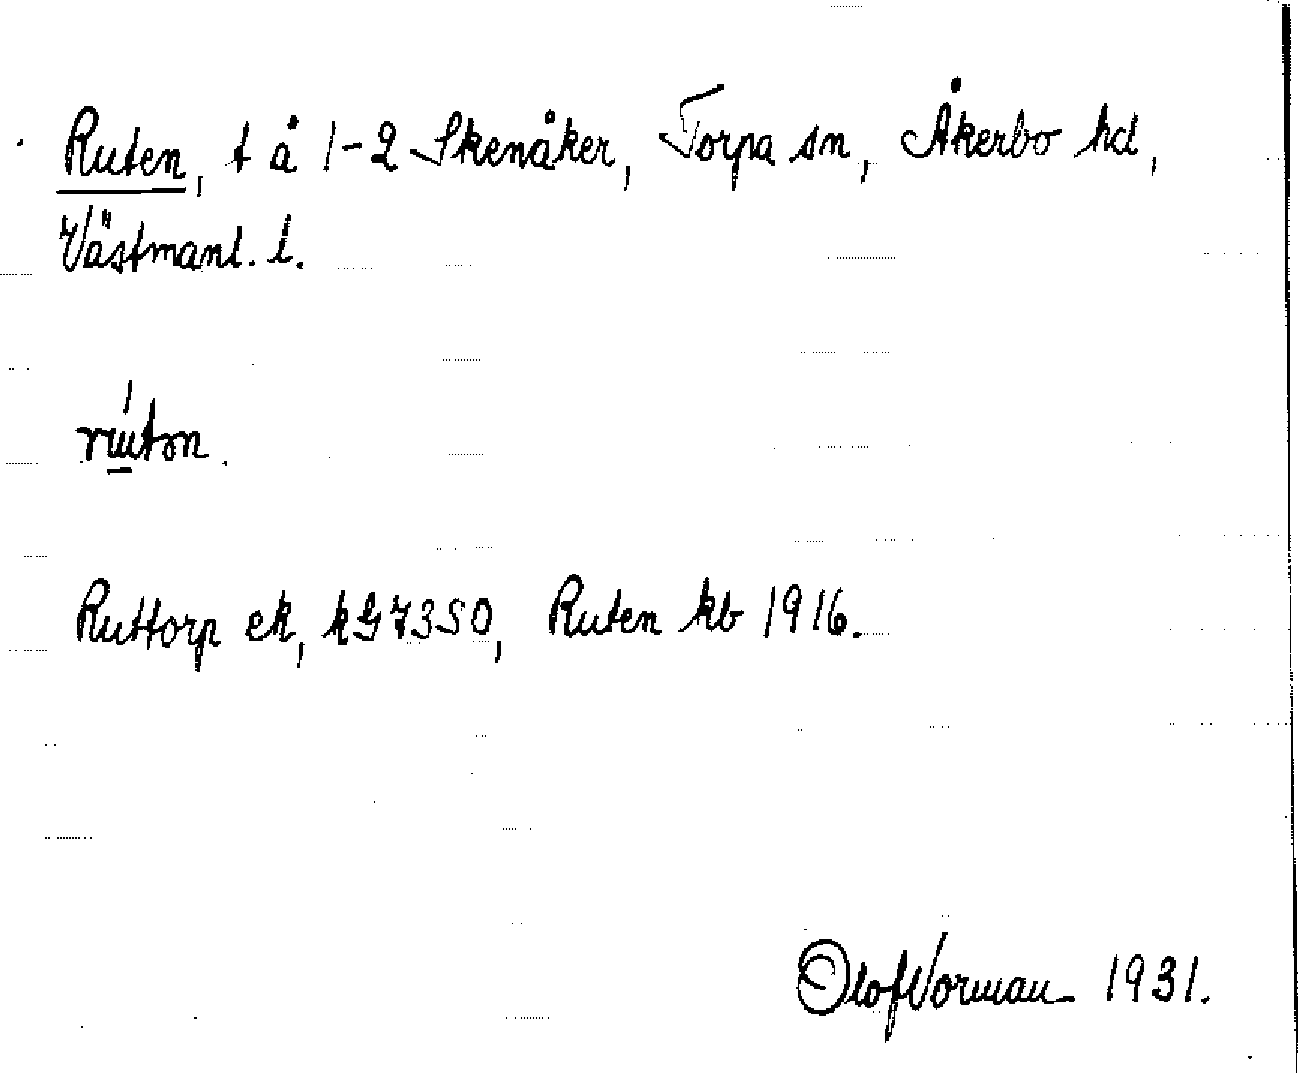 Ruten, t å 1-2 Skenåker, Torpa sn, Åkerbo hd,
Västmanl. l.
Ruttorp ek, kG7350, Ruten kb 1916.
Olof Vorman 1931.